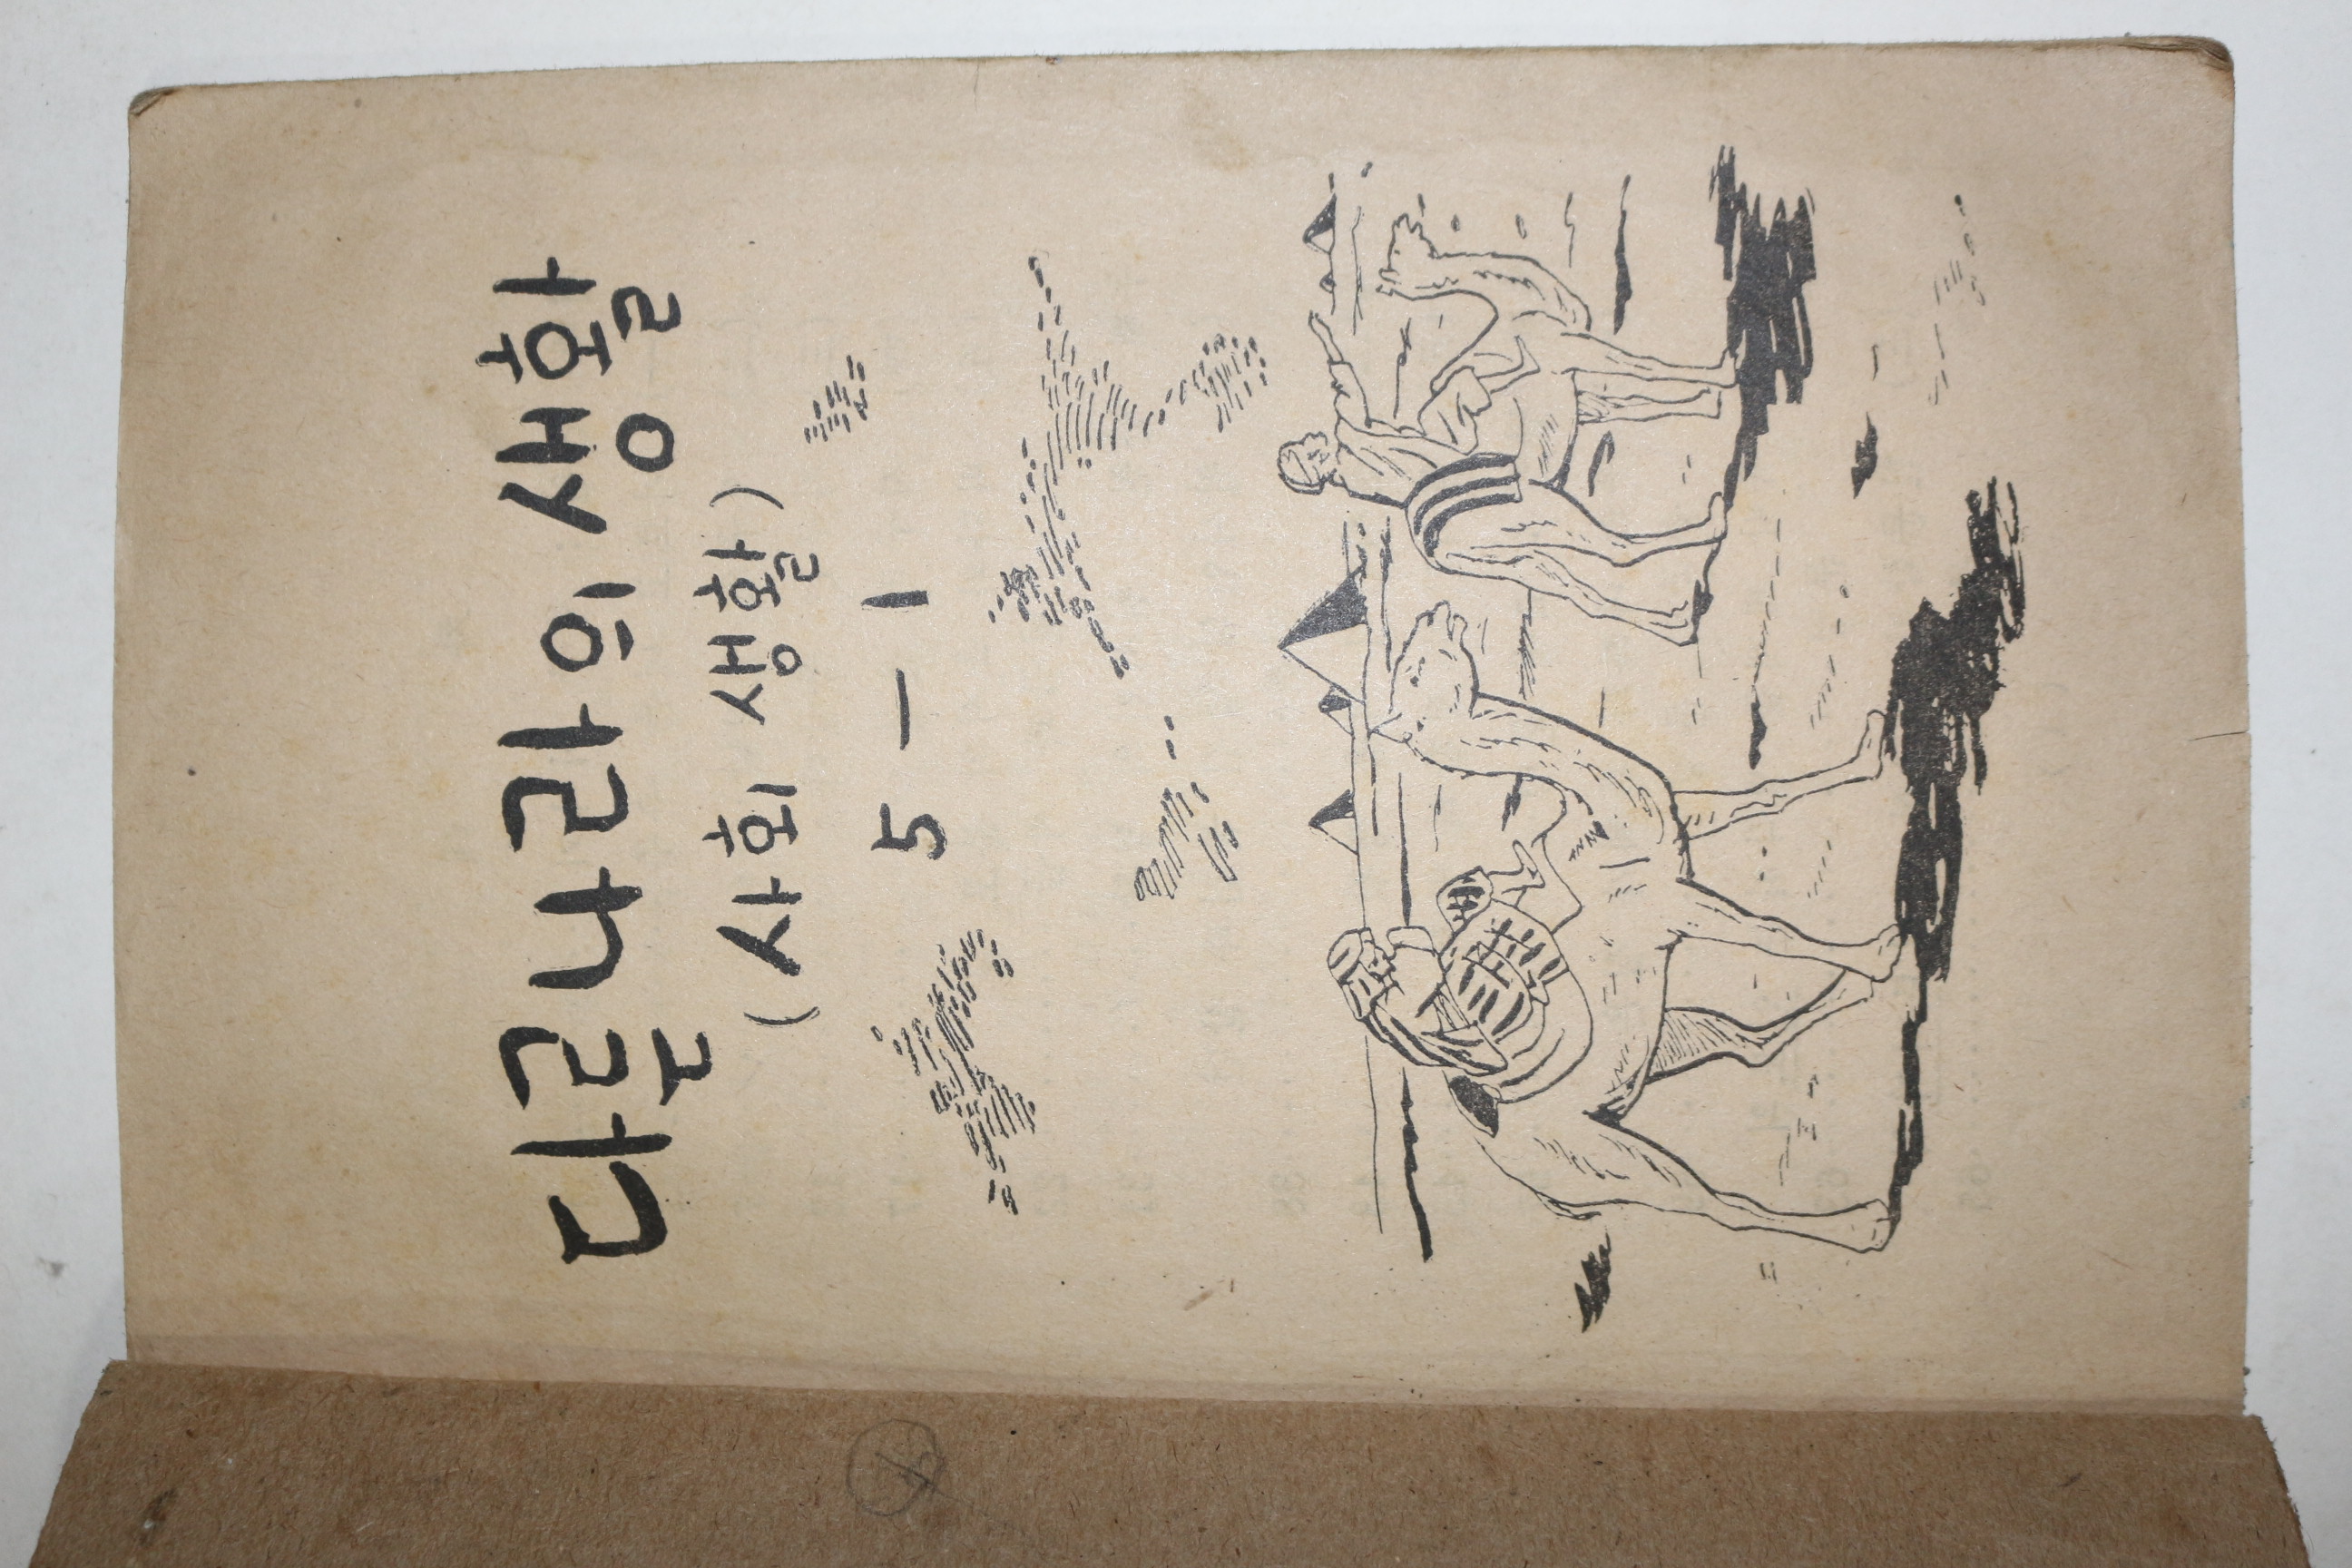 다른 나라의 생활
(사회 생활)
5-1